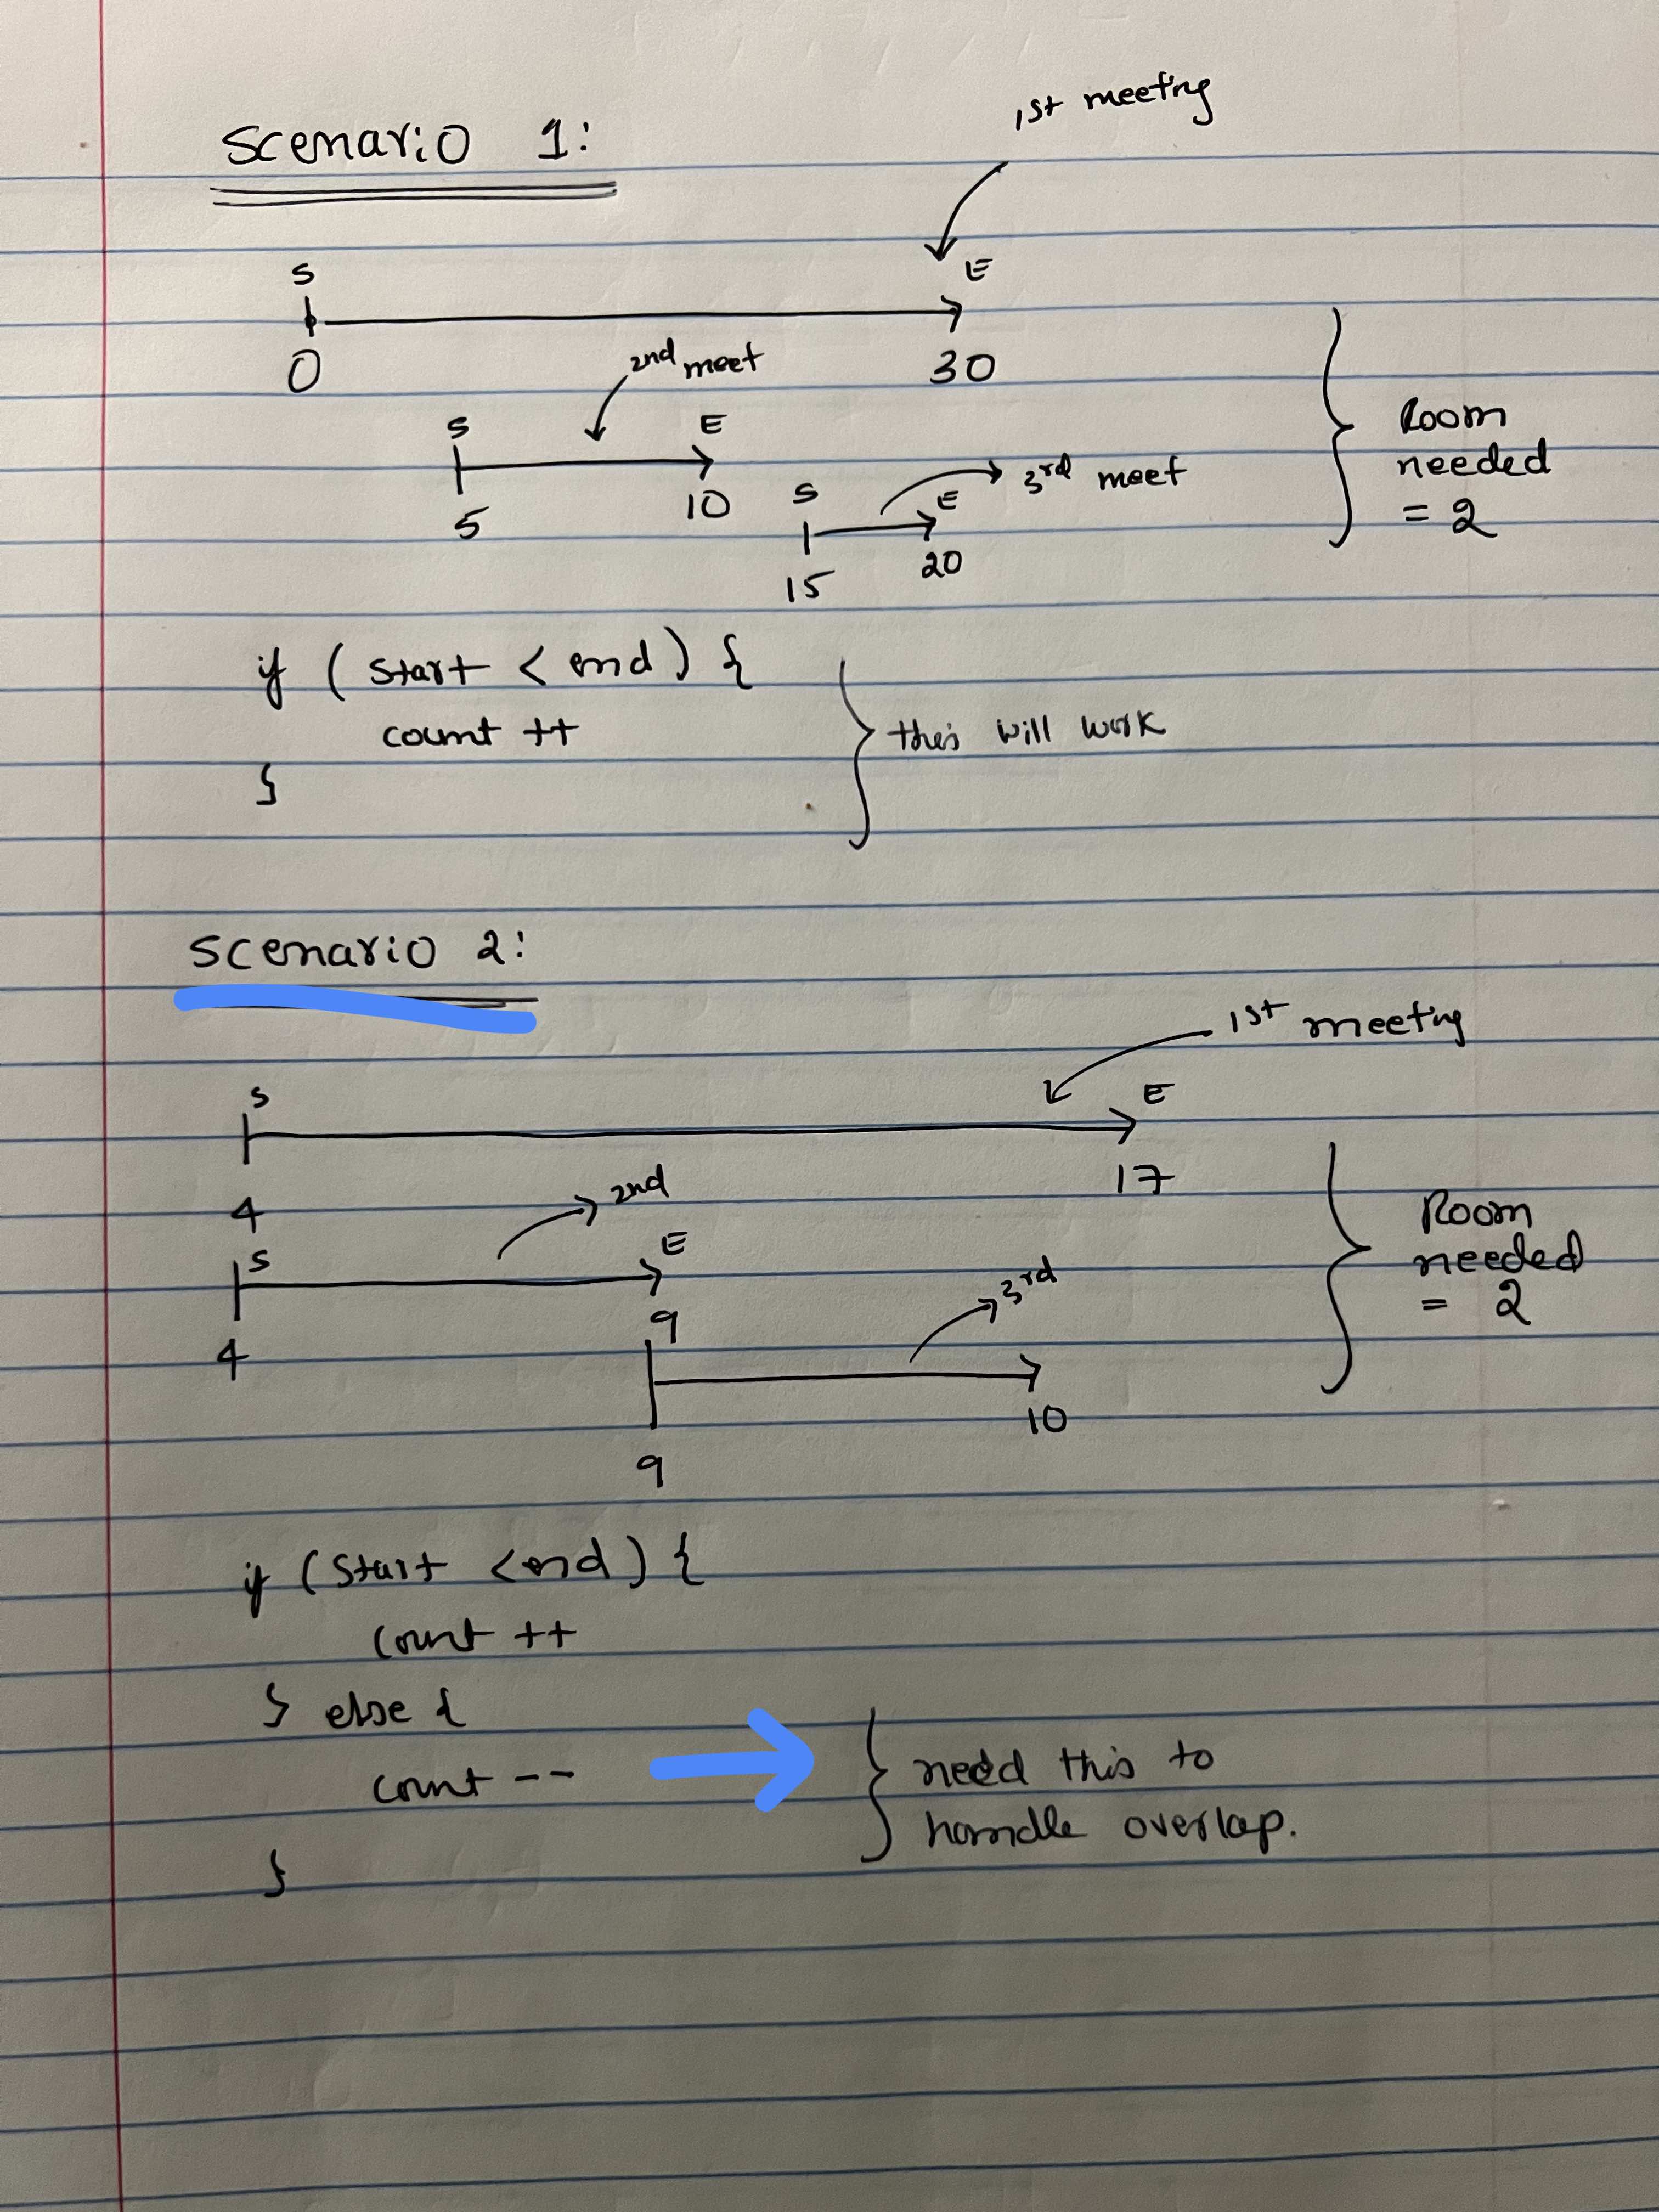 Scenario 1:
1st meeting
S
E
0
30
2nd meet
S
E
5
10
3rd meet
S
E
15
20
Room
needed
= 2
if ( start < end ) {
count ++
}
this will work
Scenario 2:
1st meeting
S
E
4
17
2nd
S
E
4
9
3rd
9
10
Room
needed
= 2
if ( start < end ) {
count ++
} else {
count --
}
need this to
handle overlap.